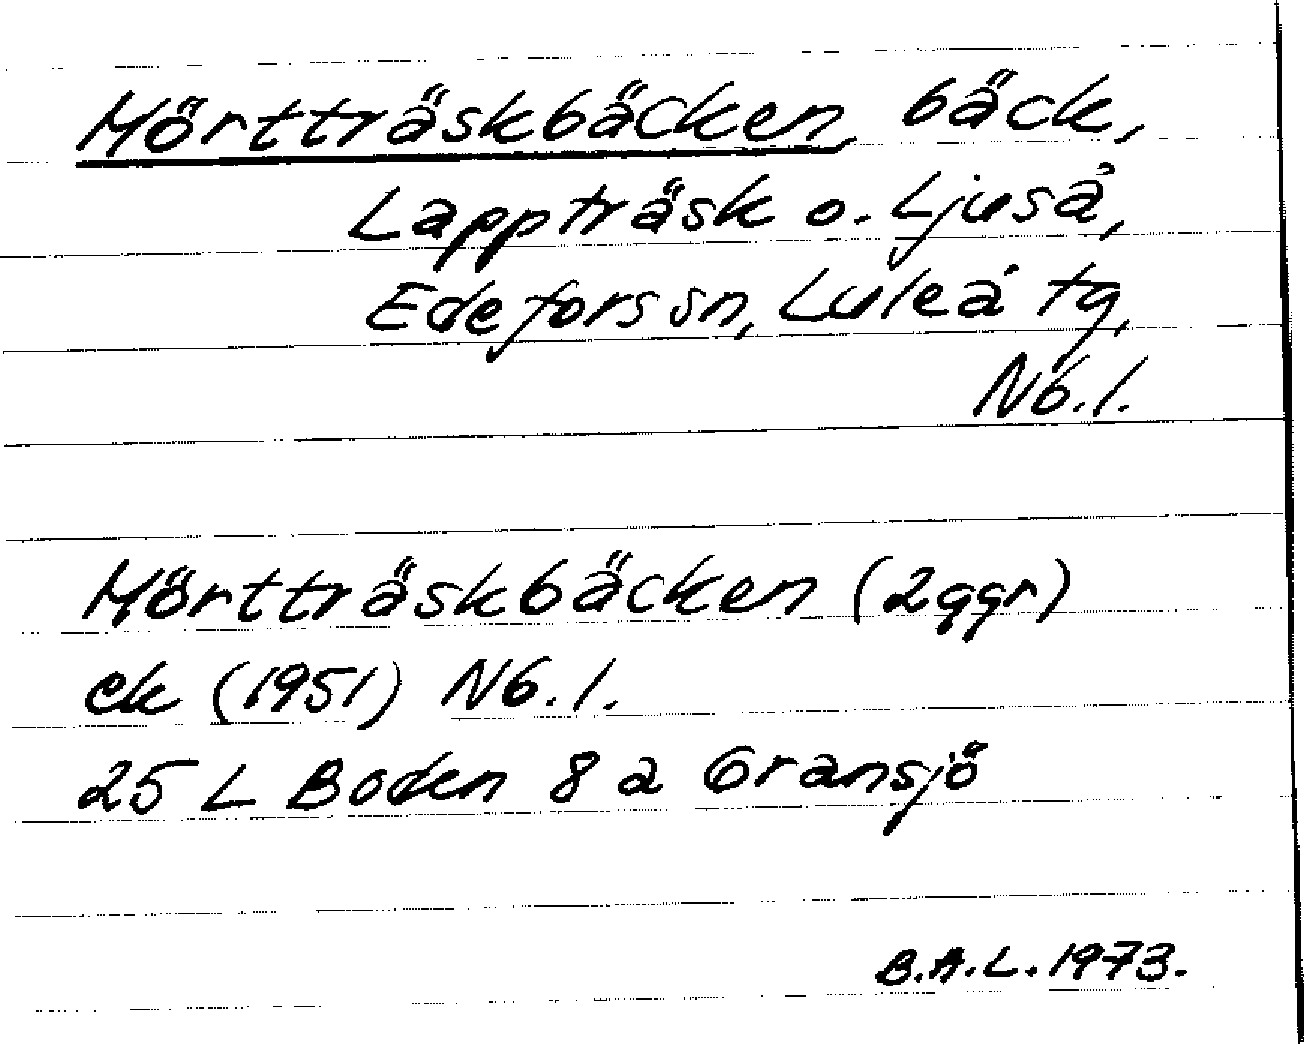 Mörtträskbäcken, bäck,
Lappträsk o. Ljuså,
Edefors sn, Luleå tg,
Nb.l.
Mörtträskbäcken (2ggr)
ek (1951) Nb.l.
25 L Boden 8 a Gransjö
B.A.L. 1973.